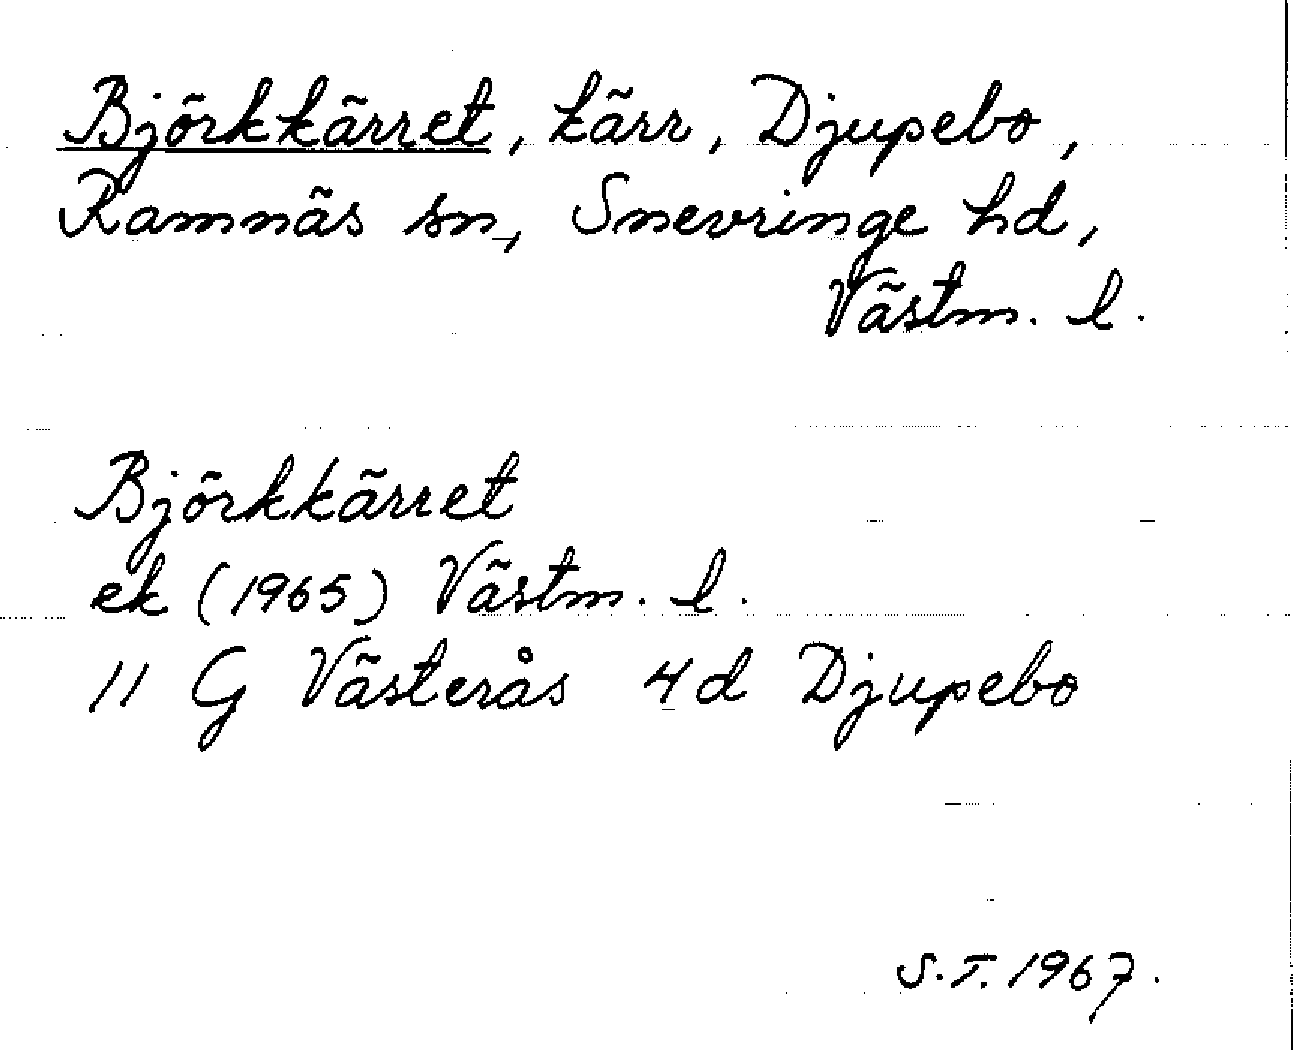 Björkkärret, kärr, Djupebo,
Ramnäs sn, Snevringe hd,
Västm. l.
Björkkärret
ek (1965) Västm. l.
11 G Västerås 4d Djupebo
S.T. 1967.